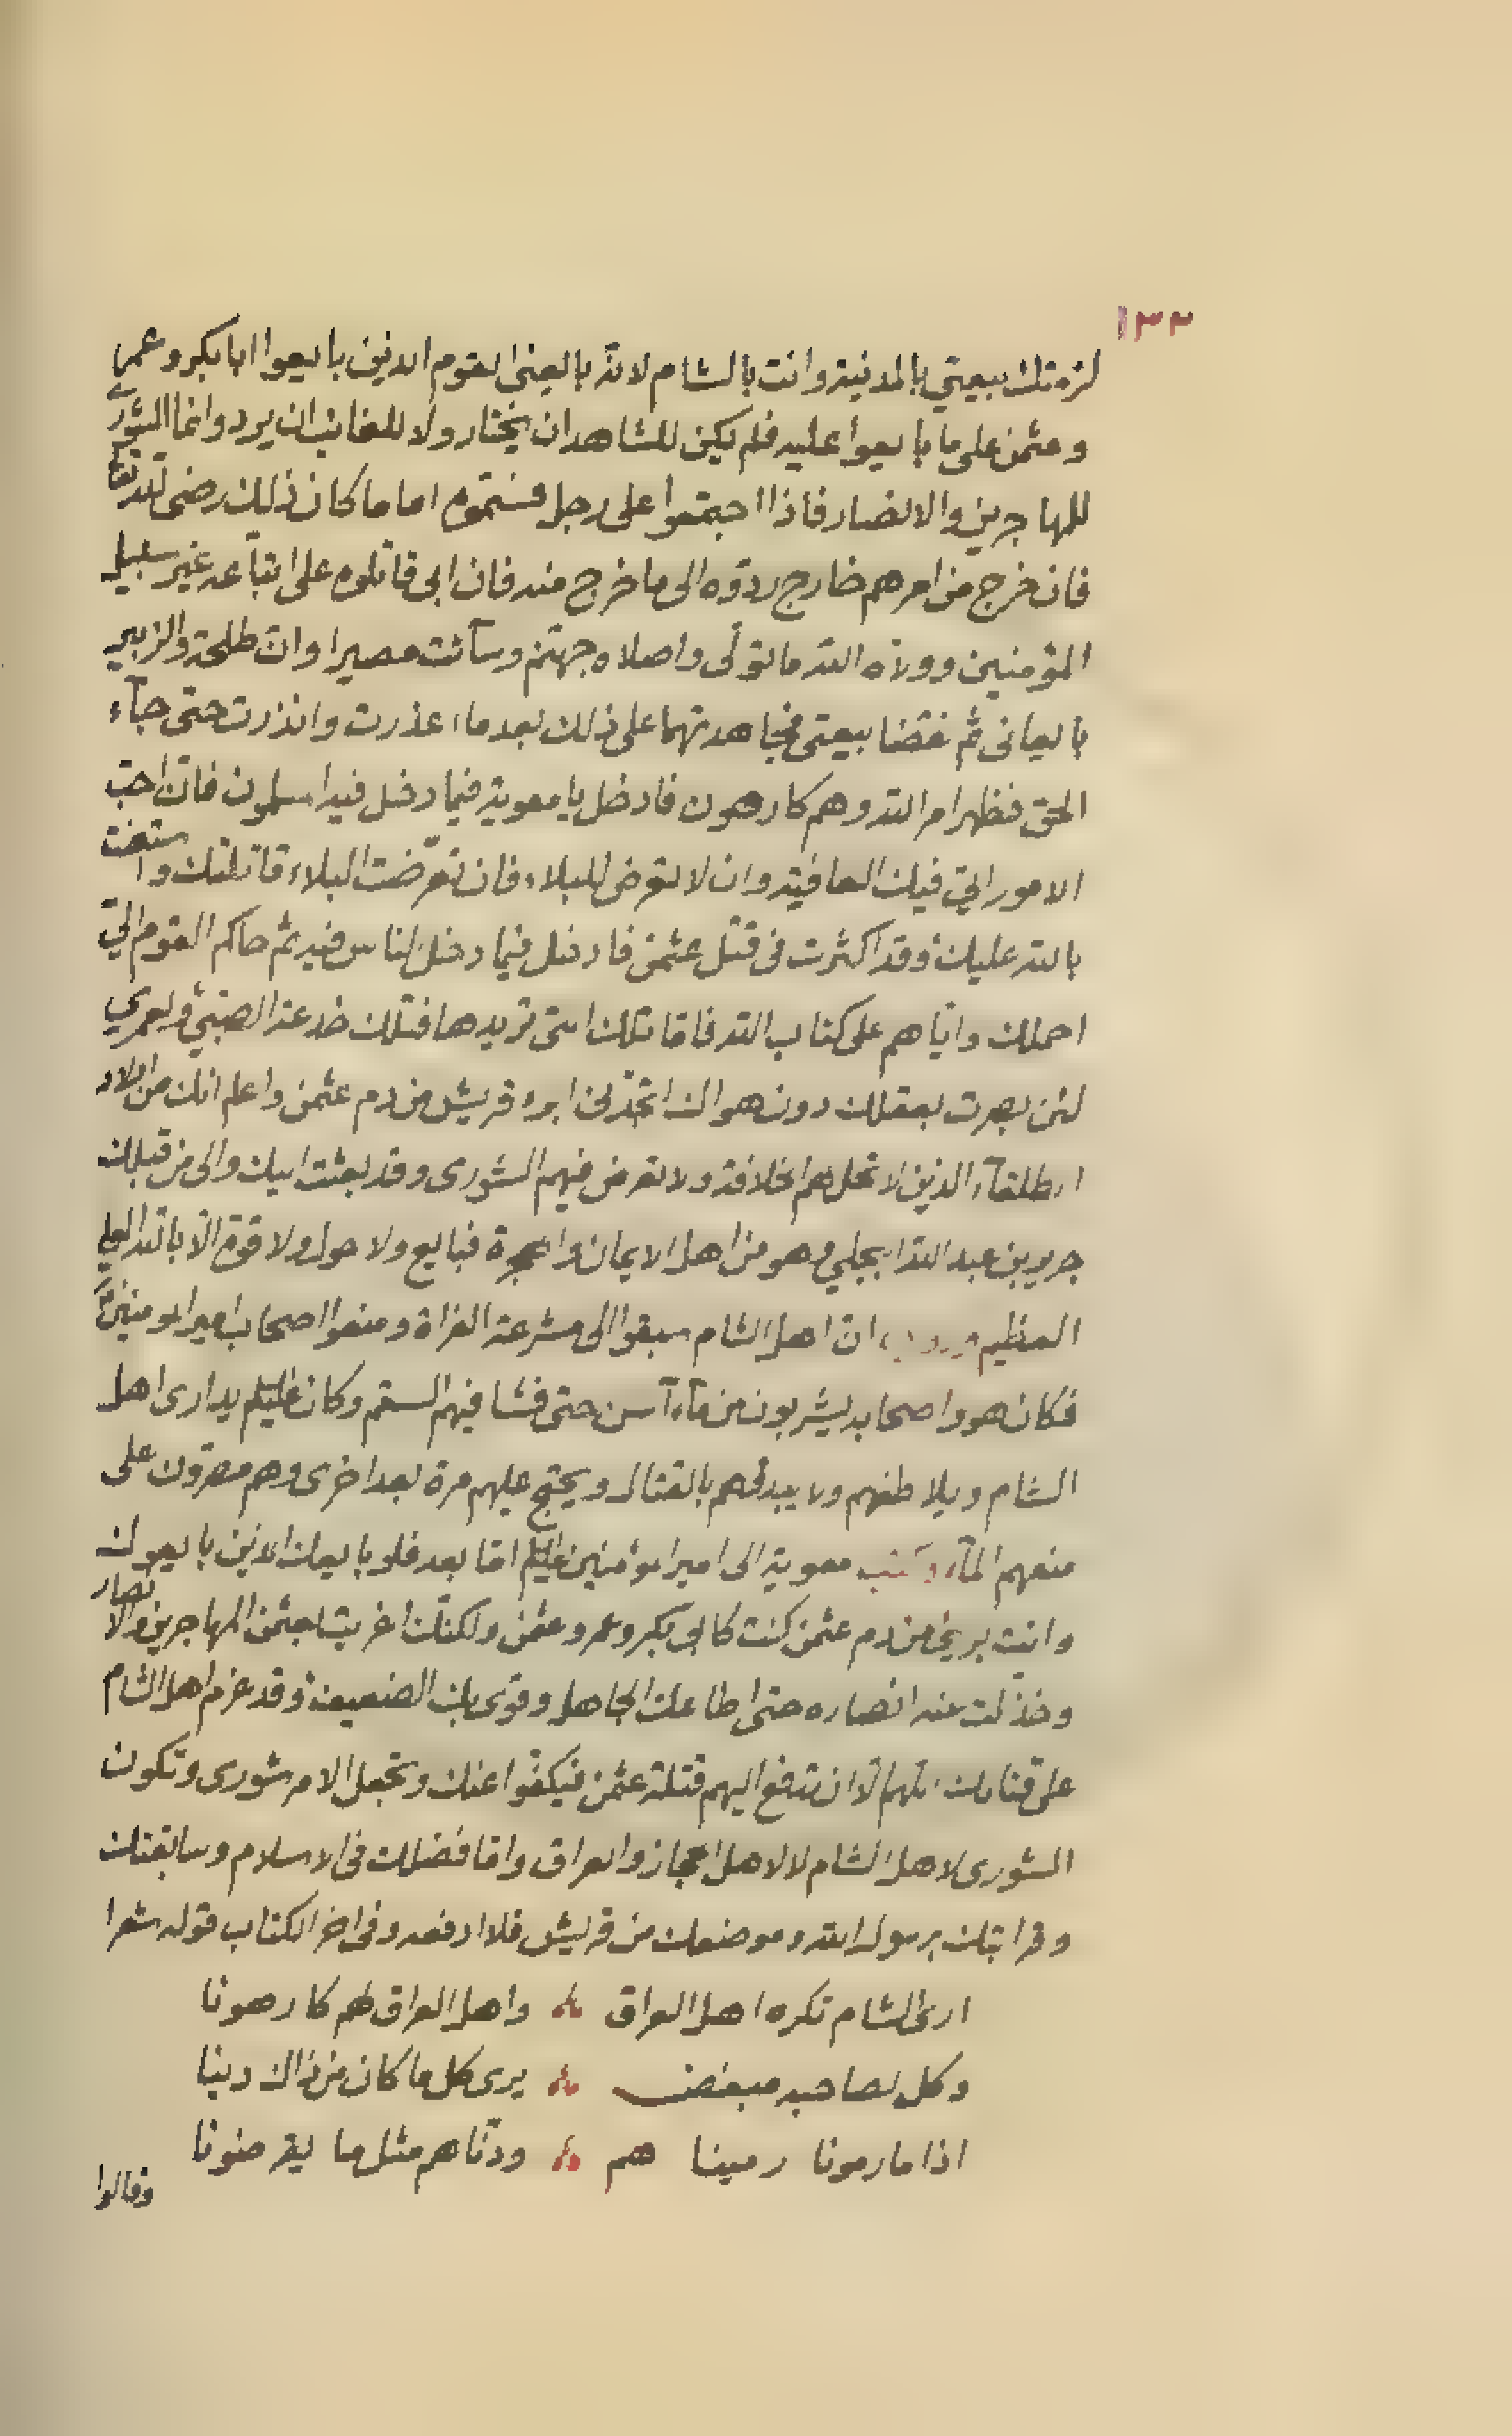 ١٣٢
لزمتك بيعتي بالمدينة وانت بالشام لانه بايعني القوم الذين بايعوا ابا بكر وعمر
وعثمن على ما بايعوا عليه فلم يكن للشاهد ان يختار ولا للغائب ان يرد وانما الشورى
للمهاجرين والانصار فاذا اجتمعوا على رجل فسموه اماما كان ذلك رضى لله تعالى
فان خرج من امرهم خارج ردوه الى ما خرج منه فان ابى قاتلوه على اتباعه غير سبيل
المؤمنين وولاه الله ما تولى واصلاه جهنم وسآئت مصيرا وان طلحة والزبير
بايعاني ثم نقضا بيعتي فجاهدتهما على ذلك بعد ما اعذرت وانذرت حتى جآء
الحق فظهر امر الله وهم كارهون فادخل يا معوية فيما دخل فيه المسلمون فان احب
الامور الي فيك العافية وان لا تعرض للبلاء فان تعرضت البلاء قاتلتك واستعنت
بالله عليك وقد اكثرت في قتل عثمن فادخل فيما دخل الناس فيه ثم حاكم القوم الي
احملك واياهم على كتاب الله فاما تلك التي تريدها فتلك خدعة الصبي ولعمري
لئن بصرت بعقلك دون هواك لتجدني ابرء قريش من دم عثمن واعلم انك من اولاد
الطلقآء الذين لا تحل لهم الخلافة ولا تعرض فيهم الشورى وقد بعثت اليك والى من قبلك
جرير بن عبد الله البجلي وهو من اهل الايمان والهجرة فبايع ولا حول ولا قوة الا بالله العلي
العظيم وروي ان اهل الشام سبقوا الى مشرعة الفراة ومنعوا اصحاب امير المومنين
فكان هو واصحابه يشربون من مآء آسن حتى فشا فيهم السقم وكان عليه السلم يدارى اهل
الشام ويلاطفهم ولا يبدئهم بالقتال ويحتج عليهم مرة بعد اخرى وهم مصرون على
منعهم المآء وكتب معوية الى امير المؤمنين عليه السلم اما بعد فلو بايعك الذين بايعوك
وانت بريء من دم عثمن كنت كابي بكر وعمر وعثمن ولكنك اغريت بعثمن المهاجرين والانصار
وخذلت عنه انصاره حتى اطاعك الجاهل وقوى بك الضعيف وقد عزم اهل الشام
على قتالك اللهم الا ان تدفع اليهم قتلة عثمن فيكفوا عنك وتجعل الامر شورى وتكون
الشورى لاهل الشام لا لاهل الحجاز والعراق واما فضلك في الاسلام وسابقتك
وقرابتك برسول الله وموضعك من قريش فلا ادفعه وفى اخر الكتاب قوله شعرا
ارى الشام تكره اهل العراق واهل العراق لهم كارهونا
وكل لصاحبه مبغض يرى كل ما كان من ذاك دينا
اذا ما رمونا رمينا هم ودناهم مثل ما يقرضونا
وقالوا